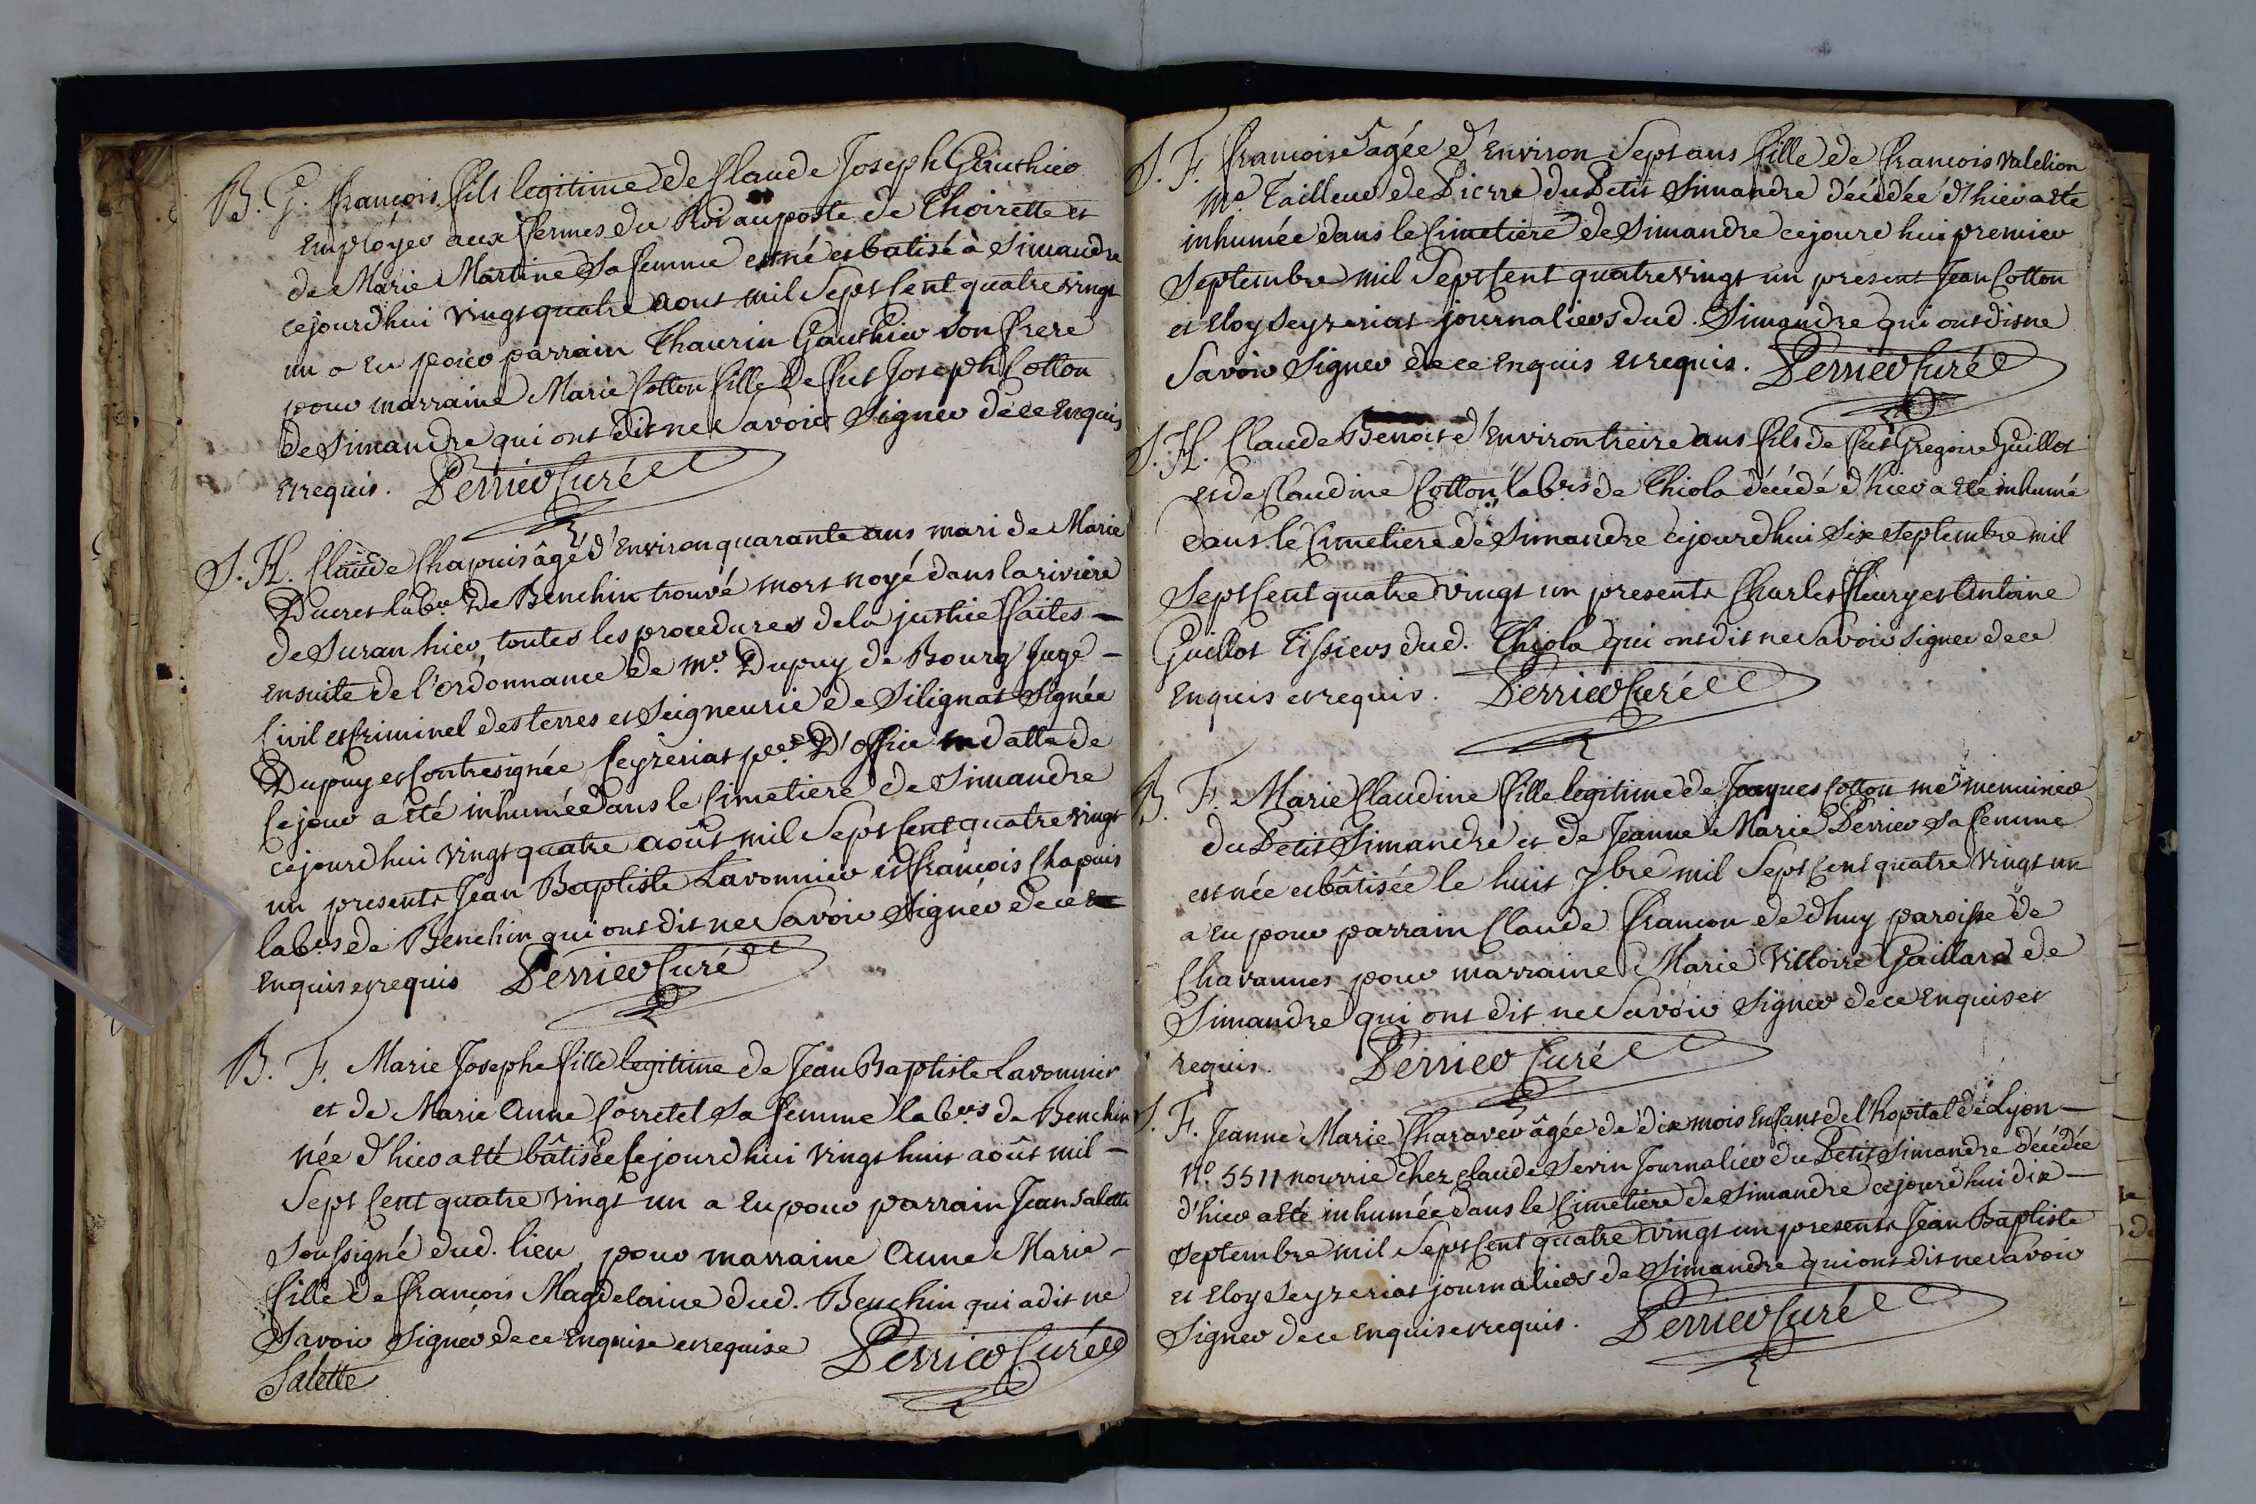 B. G. françois fils legitime de Claude Joseph Gauthier
Employer aux fermes du Roi au poste de Thoirette et
de Marie Martine sa femme est né et batisé à Simandre
cejourdhui vingt quatre aout mil sept Cent quatre vingt
un a eu pour parrain Thaurin Gauthier son frere
pour marraine Marie Cotton fille de fut Joseph Cotton
de Simandre qui ont dit ne savoir signer de ce enquis
et requis. Perrier Curé
S. H. Claude Chapuis âgé d'environ quarante ans mari de Marie
Ducret labr. de Benchin trouvé mort noyé dans la riviere
de Suran hier, toutes les procedures de la justice faites -
ensuite de l'ordonnance de Mr. Dupuy de Bourg Juge -
Civil et Criminel des terres et Seigneurie de Silignat Signée
Dupuy et Contresignée Ceyzeriat d'office en datte de
ce jour a été inhumée dans le Cimetiere de Simandre
cejourdhui vingt quatre août mil sept Cent quatre vingt
un presents Jean Baptiste Lavonnier et françois Chapuis
labrs de Benchin qui ont dit ne savoir signer de ce
enquis et requis Perrier Curé
B. F. Marie Josephe fille legitime de Jean Baptiste Lavonnier
et de Marie Anne Corretel sa femme labrs de Benchin
née d'hier a été bâtisée cejourdhui vingt huit août mil -
sept Cent quatre vingt un a eu pour parrain Jean Salette
soussigné dud. lieu, pour marraine Anne Marie -
fille de françois Magdelaine dud. Benchin qui a dit ne
savoir signer de ce enquise et requise Perrier Curé
Salette
S. F. françoise agée d'environ sept ans fille de françois Valelion
me Tailleur de Pierre du Petit Simandre décédée d'hier a été
inhumée dans le Cimetiere de Simandre cejourd'hui premier
Septembre mil sept Cent quatre vingt un present Jean Cotton
et Eloy Seyzeriat journaliers dud. Simandre qui ont dit ne
savoir signer de ce enquis et requis. Perrier Curé
S. H. Claude Benoit d'environ treize ans fils de fut Gregoire Guillot
et de Claudine Cotton labrs de Thiola décédé d'hier a été inhumé
dans le Cimetiere de Simandre cejourdhui six septembre mil
sept Cent quatre vingt un presents Charles fleury et Antoine
Guillot Tissiers dud. Thiola qui ont dit ne savoir signer de ce
enquis et requis. Perrier Curé
B. F. Marie Claudine fille legitime de Jacques Cotton me menuisier
du Petit Simandre et de Jeanne Marie Perrier sa femme
est née et bâtisée le huit 7.bre mil sept Cent quatre vingt un
a eu pour parrain Claude francon de dhuy paroisse de
Chavannes pour marraine Marie Vittoire Gaillard de
Simandre qui ont dit ne savoir signer de ce enquis et
requis. Perrier Curé
S. F. Jeanne Marie Charaver âgée de dix mois Enfant de l'hopital de Lyon -
No. 5511 nourrie chez Claude Sevin Journalier du Petit Simandre décédée
d'hier a été inhumée dans le Cimetiere de Simandre cejourd'hui dix -
septembre mil sept Cent quatre vingt un presents Jean Baptiste
et Eloy Seyzeriat journaliers de Simandre qui ont dit ne savoir
signer de ce enquis et requis. Perrier Curé